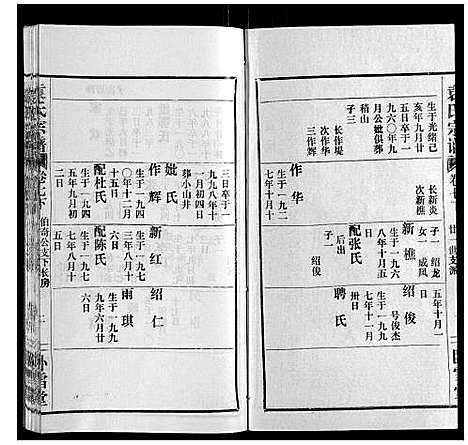 袁氏宗谱
卷之
廿一世支派
生于光绪己
亥年九月廿
五日卒于一
九六〇年九
月公妣俱葬
大山
子三
长作堤
次作华
三作辉
作华
生于一九二
七年十月十
长新炎
次新樵
子一 绍龙
女一 成凤
新樵
生于一九六
八年十月五
日
配张氏
后出
子一 绍俊
五年十月一
日
绍俊
一号俊杰
生于一九八
七年十一月
卅日
聘 氏
三日卒于一
九九八年十
一月初四日
葬小山井
妣 氏
作辉
生于一九四
〇年十二月
十五日
配杜氏
生于一九四
五年九月初
二日
新红
生于一九七
三年八月十
六日
配陈氏
生于一九七
七年八月十
日
绍仁
雨琪
生于一九九
九年六月廿
六日
袁氏宗谱
卷之下
伯奇公支下长房
卧雪堂